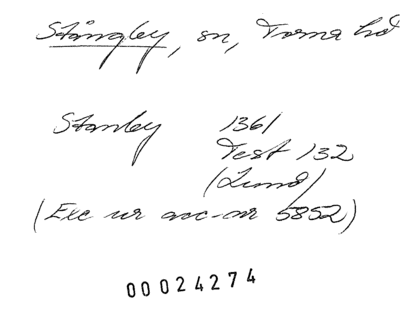 Stångby, sn, Torna hd
Stanby 1361
Test 132
(Lund)
(Exc ur acc-nr 5852)
00024274